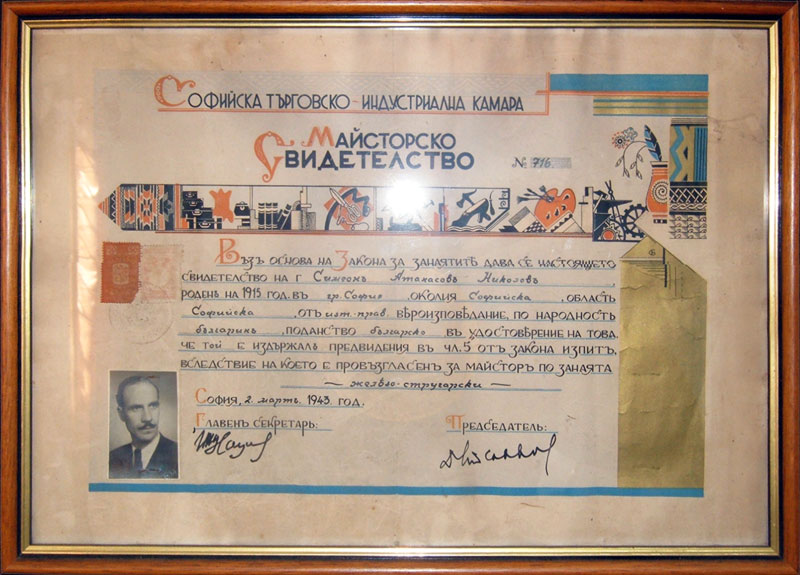 Софийска търговско-индустриална камара
Майсторско
Свидетелство
№ 716
Въз основа на Закона за занаятите дава се настоящето
свидетелство на г Симеонъ Атанасовъ Николовъ
роденъ на 1915 год. въ гр. София, околия Софийска, область
Софийска, отъ изт. прав. вѣроизповѣдание, по народность
българинъ, поданство българско въ удостовѣрение на това,
че той е издържалъ предвидения въ чл. 5 отъ закона изпитъ,
вследствие на което е провъзгласенъ за майсторъ по занаята
— желѣзо-стругарски —
София, 2. мартъ. 1943. год.
Главенъ секретарь: Председатель: